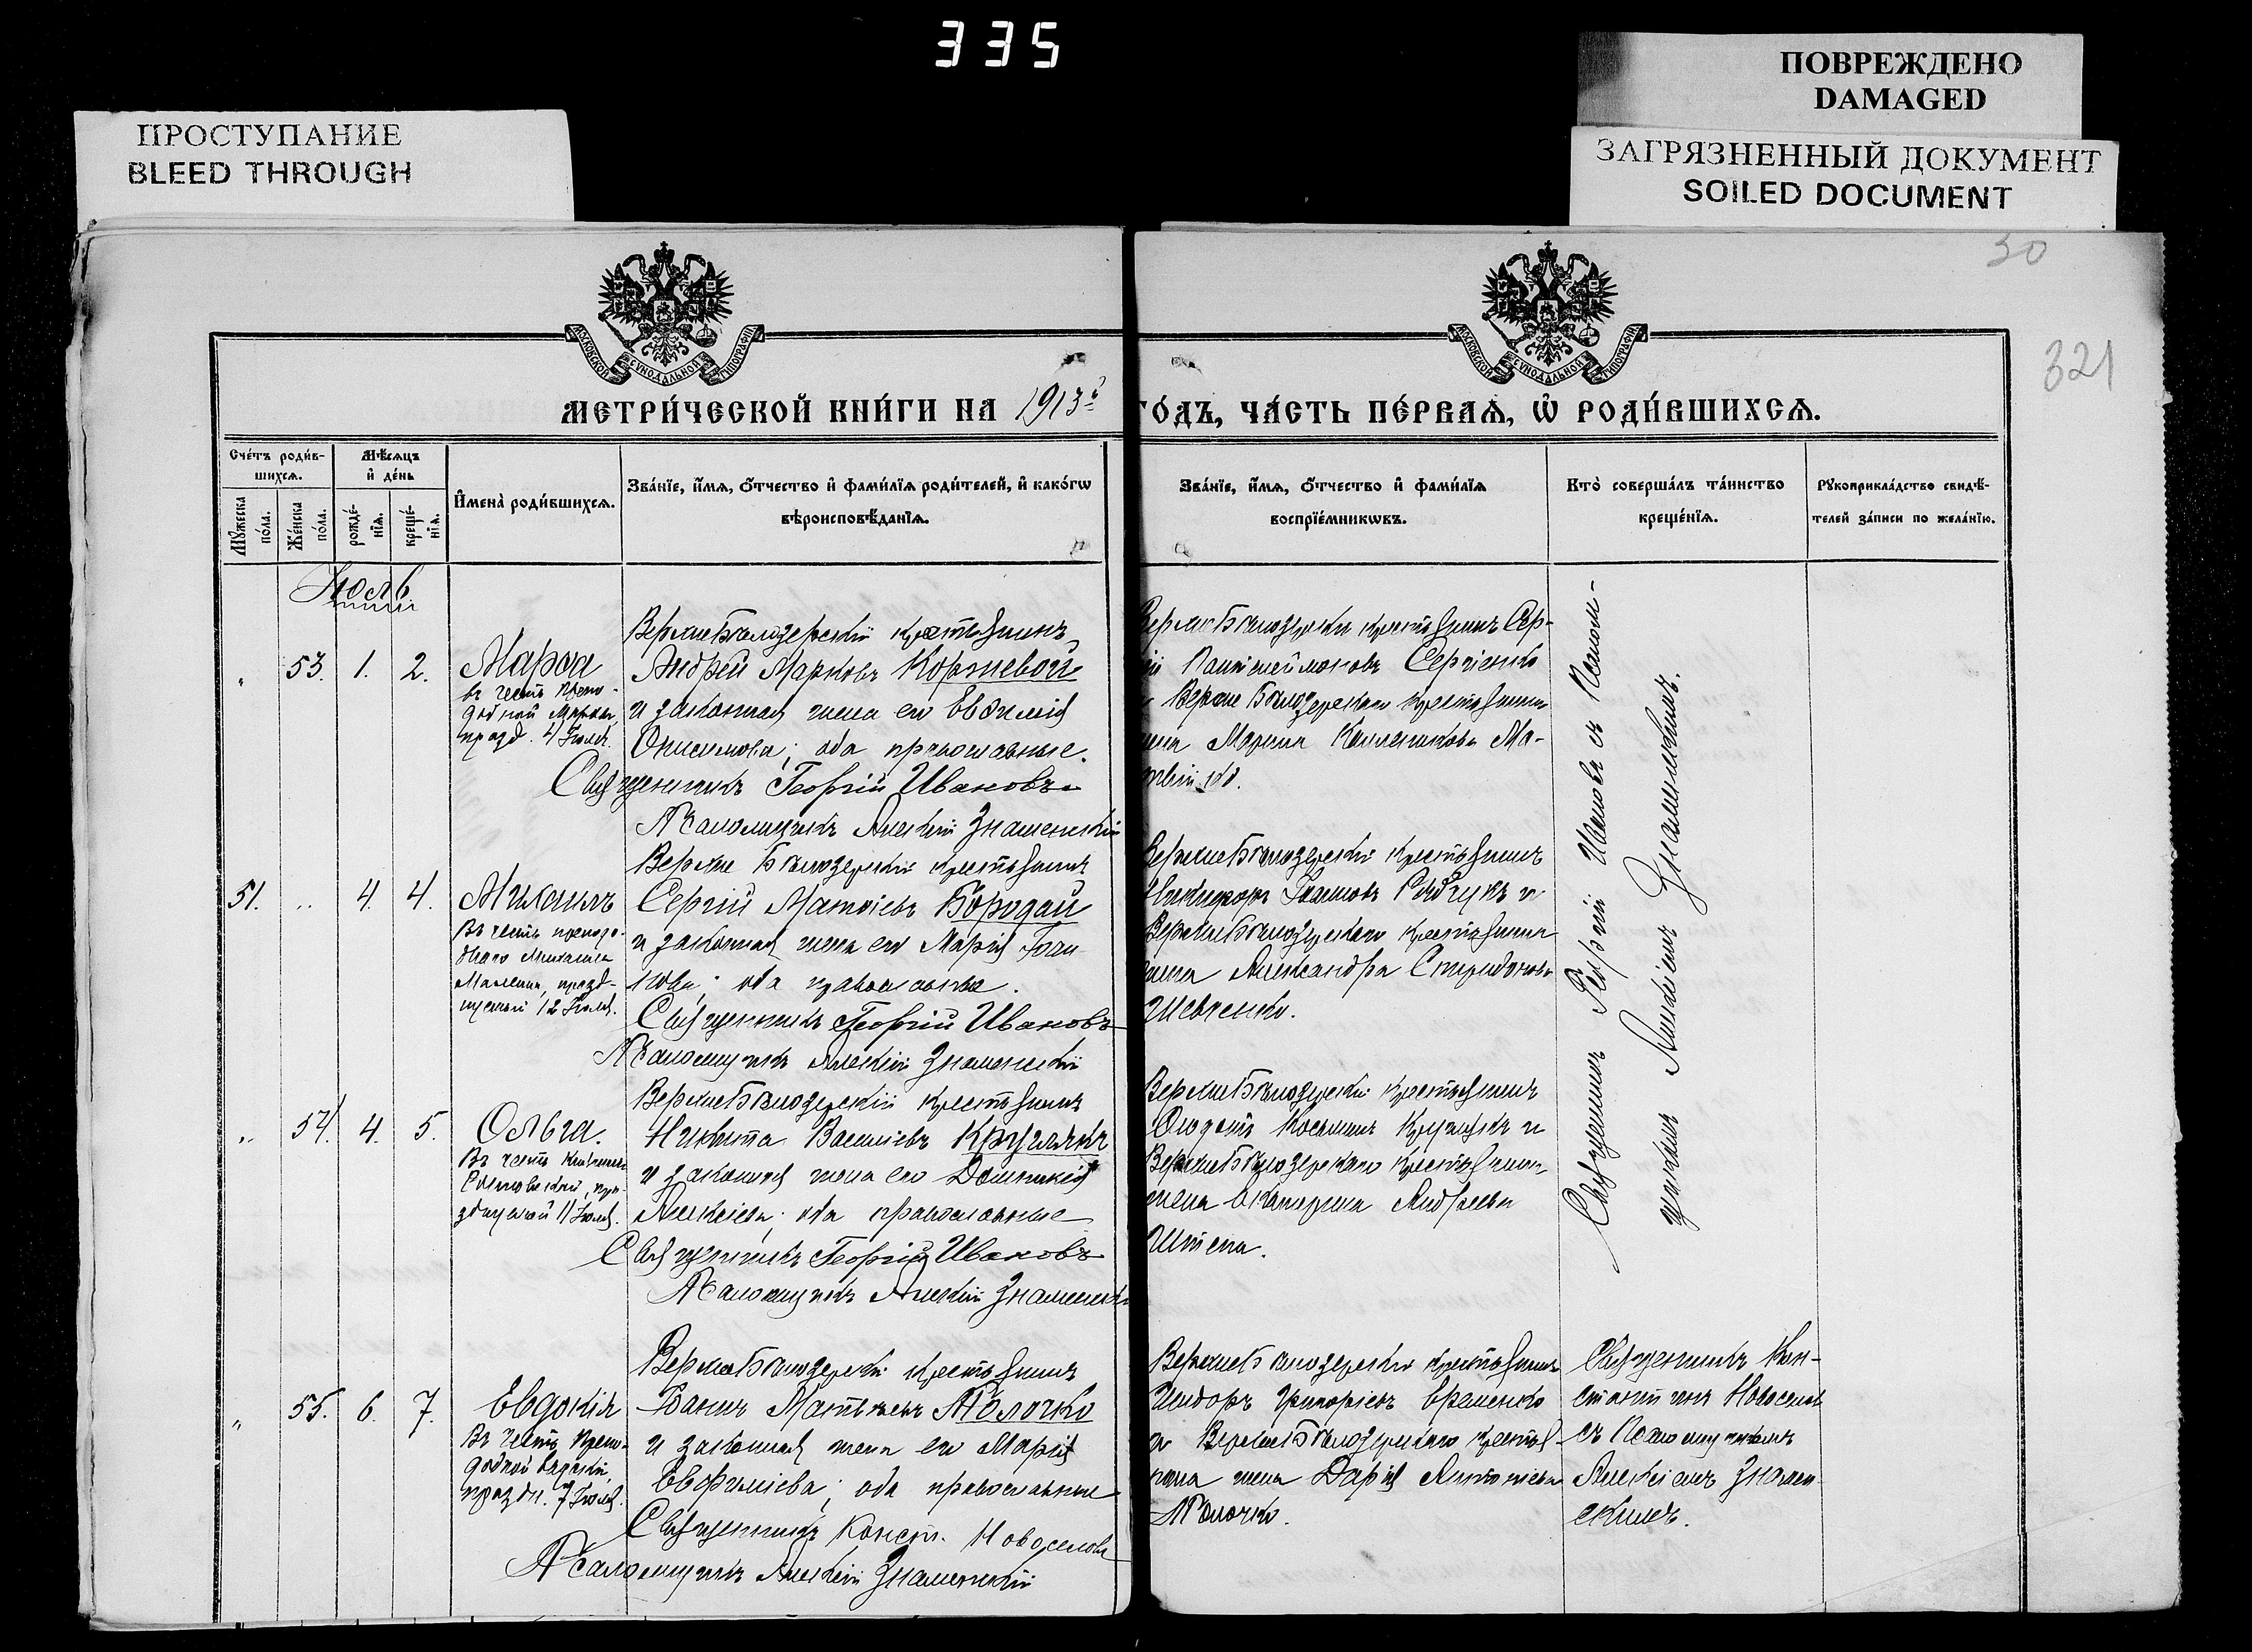 335
ПОВРЕЖДЕНО
DAMAGED
ПРОСТУПАНИЕ
BLEED THROUGH
ЗАГРЯЗНЕННЫЙ ДОКУМЕНТ
SOILED DOCUMENT
30
321
МОСКОВСКОЙ СѴНОДАЛЬНОЙ ТИПОГРАФІИ
МОСКОВСКОЙ СѴНОДАЛЬНОЙ ТИПОГРАФІИ
МЕТРИ́ЧЕСКОЙ КНИ́ГИ НА 1913й
ГО́ДЪ, ЧА́СТЬ ПЕ́РВАѦ, Ѡ҆ РОДИ́ВШИХСѦ.
Сче́тъ роди́в-
шихсѧ.
Мꙋ́жеска по́ла.
Же́нска по́ла.
Мѣ́сѧцъ
и҆ де́нь
рожде́-
нїѧ.
креще́-
нїѧ.
И҆мена̀ роди́вшихсѧ.
Зва́нїе, и҆́мѧ, ѻ҆́тчество и҆ фами́лїѧ роди́телей, и҆ како́гѡ
вѣроисповѣ́данїѧ.
Зва́нїе, и҆́мѧ, ѻ҆́тчество и҆ фами́лїѧ
воспрїе́мникѡвъ.
Кто̀ соверша́лъ та́инство
креще́нїѧ.
Рꙋкоприкла́дство свидѣ́-
телей за́писи по жела́нїю.
Іюль
53. 1. 2. Марѳа
въ честь препо-
добной Марѳы,
празд. 4 Іюля.
ВерхнеБѣлозерскій крестьянинъ
Андрей Марковъ Коржевой
и законная жена его Евфимія
Онисимова; оба православные.
Священникъ Георгій Ивановъ
Псаломщикъ Алексій Знаменскій
ВерхнеБѣлозерскій крестьянинъ Сер-
гій Пантелеймоновъ Сергіенко
и Верхне Бѣлозерскаго крестьянина
жена Марина
51. 4. 4. Михаилъ
Въ честь преподо-
бнаго Михаила
Малеина, празд-
нуемый 12 Іюля.
Верхне Бѣлозерскій крестьянинъ
Сергій Матѳіевъ Бородай
и законная жена его Марія Іоан-
нова; оба православные.
Священникъ Георгій Ивановъ
Псаломщикъ Алексій Знаменскій
ВерхнеБѣлозерскій крестьянинъ
Никифоръ Іоанновъ Рябчукъ и
ВерхнеБѣлозерскаго крестьянина
жена Александра Спиридонова
Шевченко.
54. 4. 5. Ольга.
Въ честь Княгини
Россійской, пра-
зднуемой 11 Іюля.
ВерхнеБѣлозерскій крестьянинъ
Никита Василіевъ Кручакъ
и законная жена его Домникія
Алексіева; оба православные
Священникъ Георгій Ивановъ
Псаломщикъ Алексій Знаменскій
ВерхнеБѣлозерскій крестьянинъ
Ѳеодотъ Косьминъ и
ВерхнеБѣлозерскаго крестьянина
жена Екатерина Андреева
Штепа.
Священникъ Георгій Ивановъ съ Псалом-
щикомъ Алексіемъ Знаменскимъ.
55. 6. 7. Евдокія
Въ честь препо-
добной Евдокіи,
праздн. 7 Іюля.
ВерхнеБѣлозерскій крестьянинъ
Іоаннъ Матвѣевъ Яблочко
и законная жена его Марія
Евфиміева; оба православные
Священникъ Конст. Новоселовъ
Псаломщикъ Алексій Знаменскій
ВерхнеБѣлозерскій крестьянинъ
Исидоръ Григоріевъ Еременко
и ВерхнеБѣлозерскаго крестья-
нина жена Дарія Антоніева
Яблочко.
Священникъ Кон-
стантинъ Новоселовъ
съ Псаломщикомъ
Алексіемъ Знамен-
скимъ.